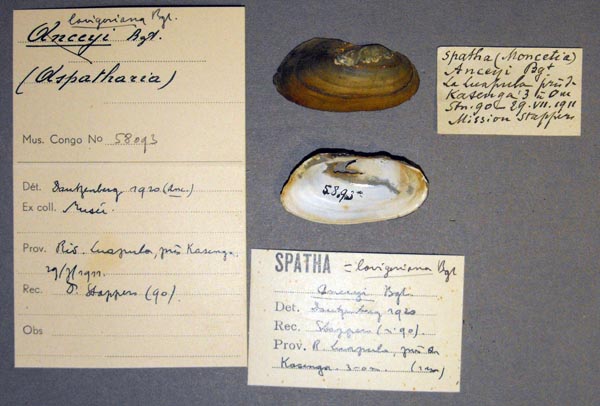 lavigeriana Bgt.
Anceyi Bgt.
(Aspatharia)
Mus. Congo No 58093
Dét. Dautzenberg 1920 (Anc.)
Ex coll. Musée.
Prov. Riv. Luapula, près Kasenga.
29/7/1911.
Rec. Stappers (90).
Obs
58.093
Spatha (Moncetia)
Anceyi Bgt
La Luapula près de
Kasenga 3 à 0m
Stn. 90 - 29.VII.1911
Mission Stappers
SPATHA = lavigeriana Bgt
Anceyi Bgt.
Det. Dautzenberg 1920
Rec. Stappers (n. 90).
Prov. R. Luapula, près de
Kasenga. 3-0m.